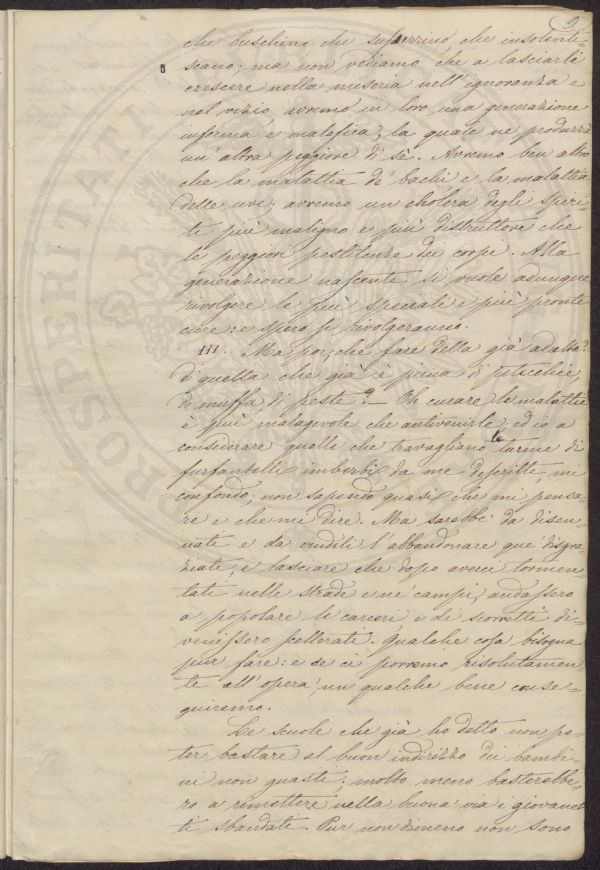 9
che buschino che susurrino che insolenti-
scano; ma non vediamo che a lasciarli
crescere nella miseria nell'ignoranza e
nel vizio avremo in loro una generazione
inferma e malefica, la quale ne produrrà
un'altra peggiore di sè. Avremo ben altro
che la malattia de' bachi e la malattia
delle uve; avremo un cholera degli spiri-
ti più maligno e più distruttore che
le peggiori pestilenze dei corpi. Alla
generazione nascente si vuole adunque
rivolgere le più speciali e più pronte
cure: e spero si rivolgeranno.
III. Ma poi, che fare della già adulta?
di quella che già è piena di
di muffa, di peste? — Oh curare le malattie
è più malagevole che antivenirle; ed io a
considerare quelle che travagliano le torme di
furfantelli imberbi da me descritte, mi
confondo, non sapendo quasi che mi pensa-
re e che mi dire. Ma sarebbe da disen-
nati e da crudeli l'abbandonare que' disgra-
ziati, e lasciare che dopo averci tormen-
tati nelle strade e ne' campi, andassero
a popolare le carceri e di scorretti di-
venissero scellerati. Qualche cosa bisogna
pur fare: e se ci porremo risolutamen-
te all'opera, un qualche bene conse-
guiremo.
Le scuole che già ho detto non po-
ter bastare al buon indirizzo dei bambi-
ni non guasti; molto meno basterebbe-
ro a rimettere nella buona via i giovanet-
ti sbandati. Pur nondimeno non sono
PROSPERITATI